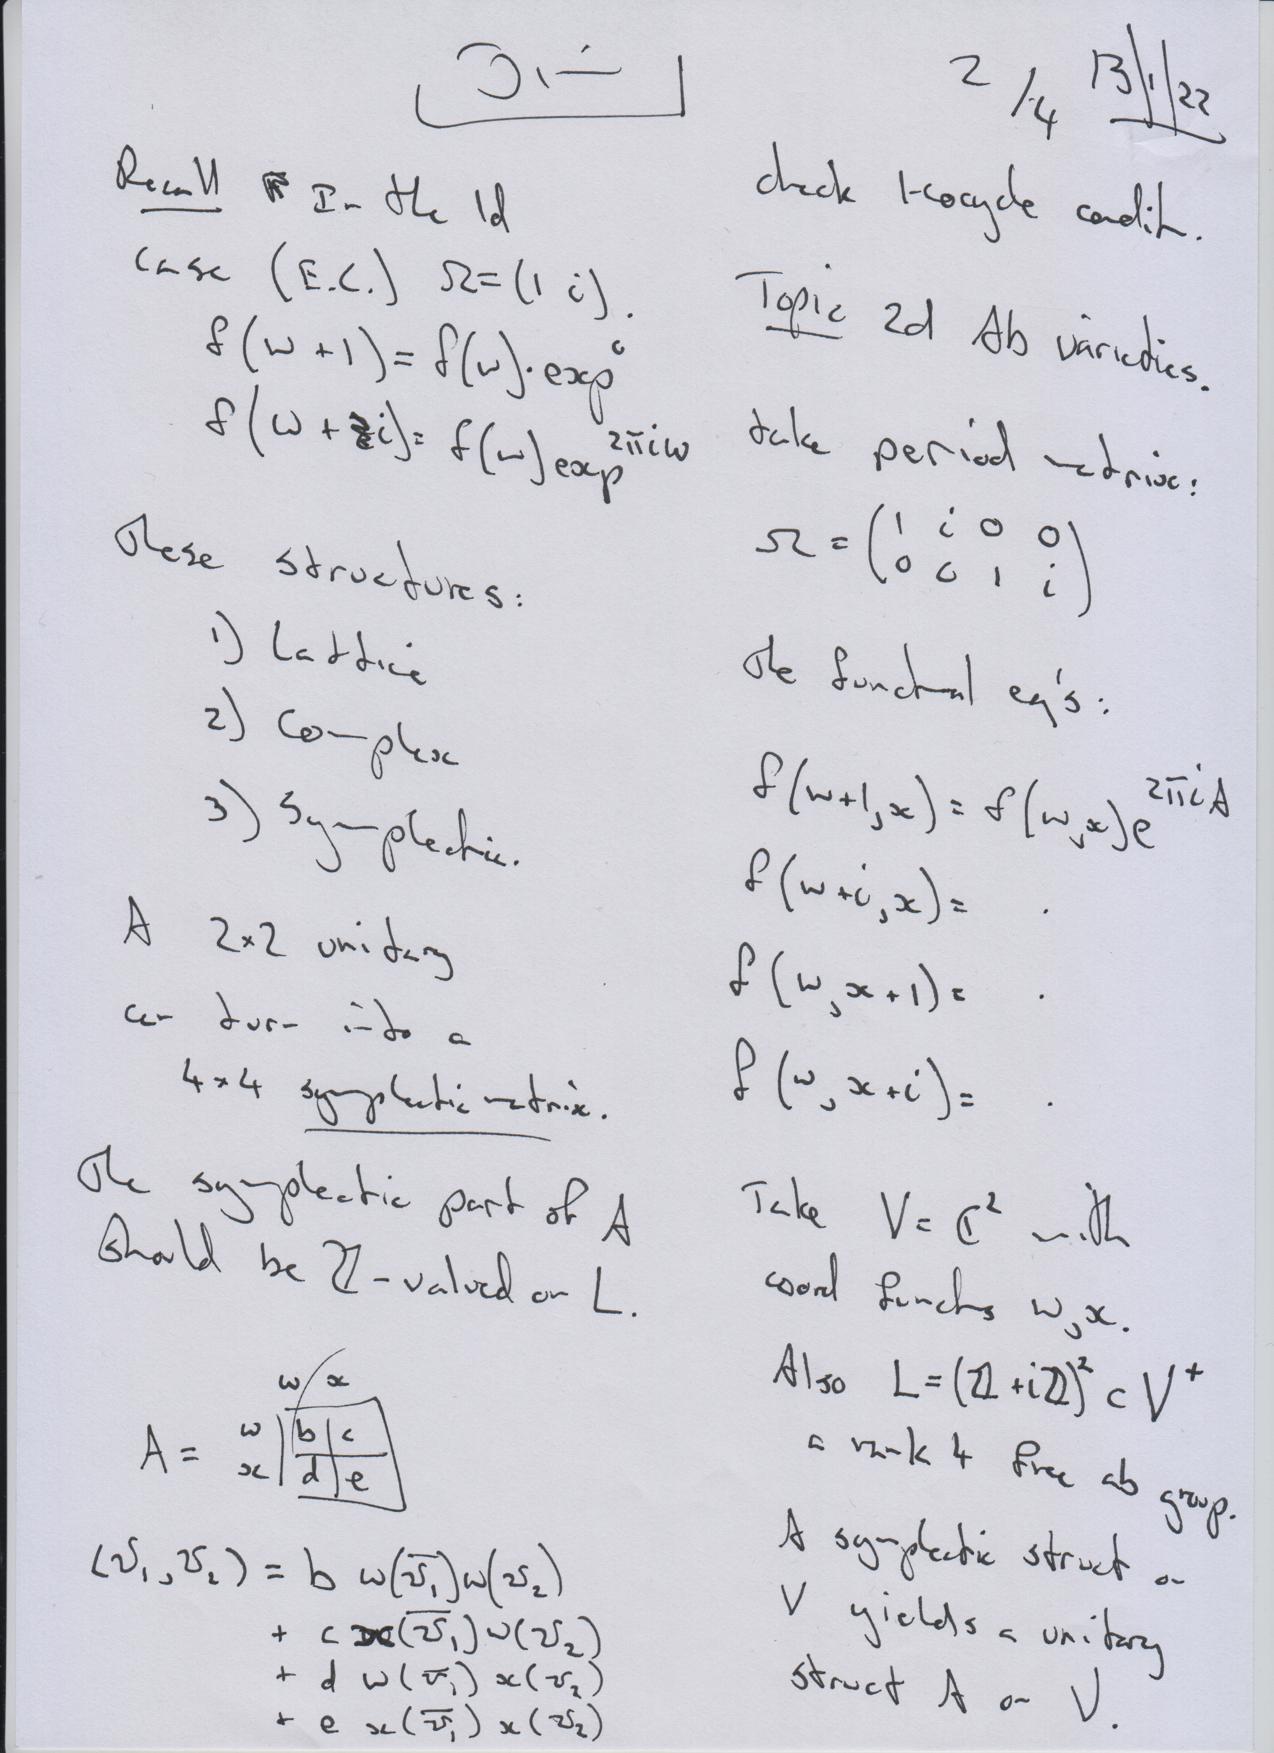 2/4 13/1/22
Recall In the 1d
case (E.C.) Ω=(1 i).
f(w+1)=f(w)·exp⁰
f(w+i)=f(w)exp^{2πiw}
These structures:
1) Lattice
2) Complex
3) Symplectic.
A 2×2 unitary
can turn into a
4×4 symplectic matrix.
The symplectic part of A
should be ℤ-valued on L.
w x
A = w | b | c
x | d | e
(v₁,v₂) = b w(v̄₁)w(v₂)
+ c x(v̄₁)w(v₂)
+ d w(v̄₁) x(v₂)
+ e x(v̄₁) x(v₂)
check 1-cocycle condit.
Topic 2d Ab varieties.
take period matrix:
Ω = (1 i 0 0
0 0 1 i)
The functnal eq's:
f(w+1,x) = f(w,x)e^{2πiA}
f(w+i,x)= .
f(w,x+1)= .
f(w,x+i)= .
Take V=ℂ² with
coord functns w,x.
Also L=(ℤ+iℤ)²⊂V⁺
a rank 4 free ab group.
A symplectic struct on
V yields a unitary
struct A on V.